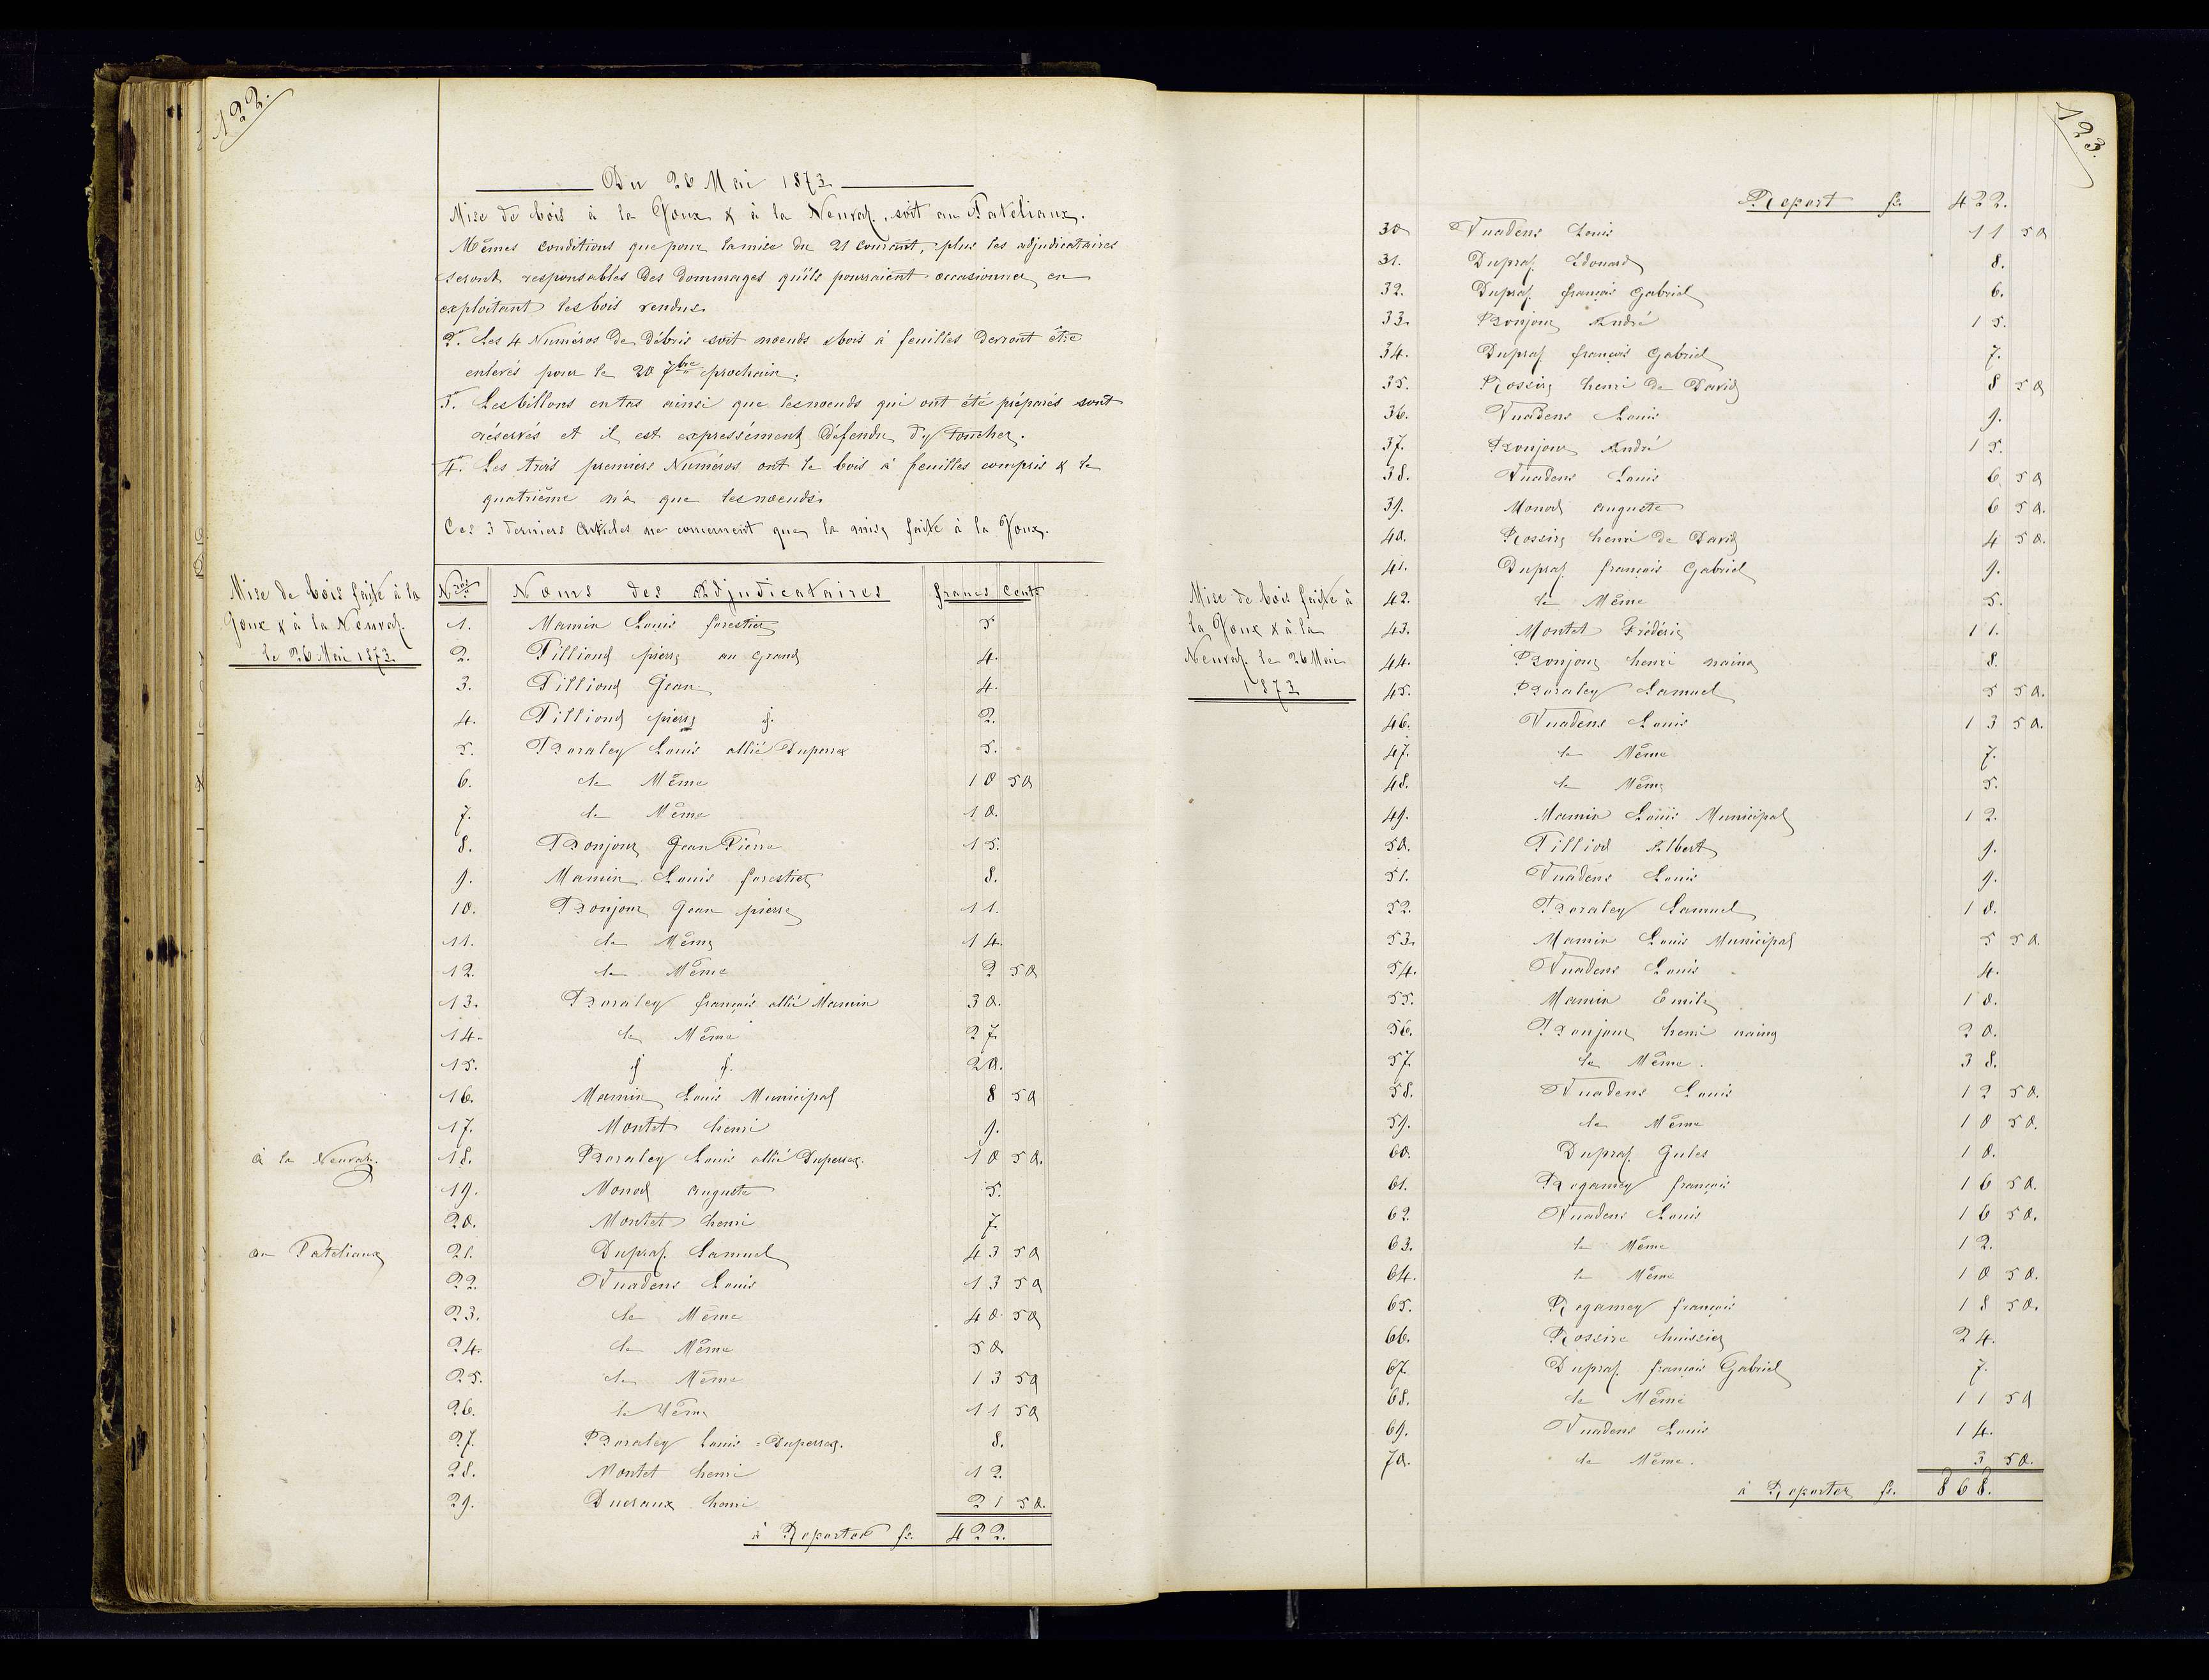 122.
Du 26 Mai 1873.
Mise de bois à la Joux & à la Neuvaz, soit au Pateliaux.
Mêmes conditions que pour la mise du 21 courant, plus les adjudicataires
seront responsables des dommages qu'ils pourraient occasionner en
exploitant les bois vendus.
2°. Les 4 Numéros de débris soit noeuds & bois à feuilles devront être
enlevés pour le 20 7bre prochain.
3°. Les billons en tas ainsi que les noeuds qui ont été préparés sont
réservés et il est expressément défendu d'y toucher.
4°. Les trois premiers Numéros ont le bois à feuilles compris & le
quatrième n'a que les noeuds.
Ces 3 derniers Articles ne concernent que la mise faite à la Joux.
Mise de bois faite à la
Joux & à la Neuvaz
le 26 Mai 1873.
Nros Noms des Adjudicataires francs Cents
1. Mamin Louis forestier 5
2. Pilliond pierre au grand 4.
3. Pilliond Jean 4.
4. Pilliond pierre f. 2.
5. Boraley Louis allié Duperrex 5.
6. le Même 10 50
7. le Même 10.
8. Bonjour Jean Pierre 15.
9. Mamin Louis forestier 8.
10. Bonjour Jean pierre 11.
11. le Même 14.
12. le Même 2 50
13. Boraley françois allié Mamin 30.
14. le Même 27.
15. f f. 20.
16. Mamin Louis Municipal 8 50
17. Montet henri 9.
à la Neuvaz. 18. Boraley Louis allié Duperrex. 10 50.
19. Monod auguste 5.
20. Montet henri 7
au Pateliaux 21. Dupraz Samuel 43 50
22. Vuadens Louis 13 50
23. le Même 40 50
24. le Même 50
25. le Même 13 50
26. le Même 11 50
27. Boraley Louis = Duperrex. 8.
28. Montet henri 12
29. Ducraux henri 21 50.
à Reporter fr. 422.
123.
Report fr. 422.
30 Vuadens Louis 11 50
31. Dupraz Edouard 8.
32. Dupraz françois Gabriel 6.
33. Bonjour André 15.
34. Dupraz françois Gabriel 7.
35. Rossire henri de David 8 50
36. Vuadens Louis 9.
37. Bonjour André 15.
38. Vuadens Louis 6 50
39. Monod auguste 6 50.
40. Rossire henri de David 4 50.
41. Dupraz françois Gabriel 9.
Mise de bois faite à
la Joux & à la
Neuvaz le 26 Mai
1873
42. le Même 5.
43. Montet Frédéric 11.
44. Bonjour henri naina 8.
45. Boraley Samuel 5 50.
46. Vuadens Louis 13 50.
47. le Même 7.
48. le Même 5.
49. Mamin Louis Municipal 12.
50. Pilliod Albert 9.
51. Vuadens Louis 9.
52. Boraley Samuel 10.
53. Mamin Louis Municipal 5 50.
54. Vuadens Louis 4.
55. Mamin Emile 10.
56. Bonjour henri naina 20.
57. le Même. 38.
58. Vuadens Louis 12 50.
59. le Même 10 50.
60. Dupraz Jules 10.
61. Regamey françois 16 50.
62. Vuadens Louis 16 50.
63. le Même 12.
64. le Même 10 50.
65. Regamey françois 18 50.
66. Rossire huissier 24.
67. Dupraz françois Gabriel 7.
68. le Même 11 50
69. Vuadens Louis 14.
70. le Même. 3 50.
à Reporter fr. 868.